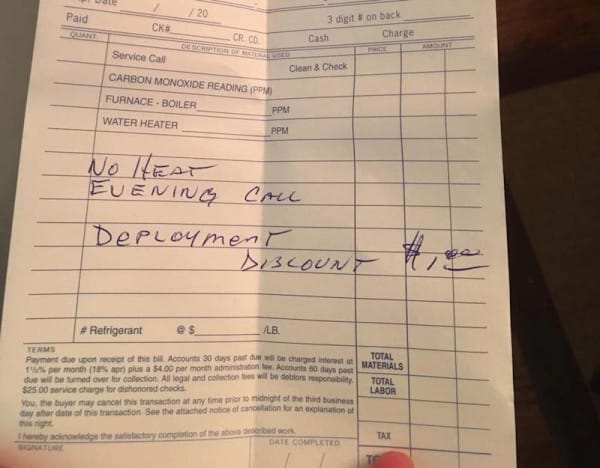 / / 20
3 digit # on back
Paid CK# CR. CD. Cash Charge
QUANT. DESCRIPTION OF MATERIAL USED PRICE AMOUNT
Service Call Clean & Check
CARBON MONOXIDE READING (PPM)
FURNACE - BOILER PPM
WATER HEATER PPM
NO HEAT
EVENING CALL
DEPLOYMENT
DISCOUNT $1,00
# Refrigerant @ $ /LB.
TERMS
Payment due upon receipt of this bill. Accounts 30 days past due will be charged interest at
1½% per month (18% apr) plus a $4.00 per month administration fee. Accounts 60 days past
due will be turned over for collection. All legal and collection fees will be debtors responsibility.
$25.00 service charge for dishonored checks.
You, the buyer may cancel this transaction at any time prior to midnight of the third business
day after date of this transaction. See the attached notice of cancellation for an explanation of
this right.
I hereby acknowledge the satisfactory completion of the above described work.
SIGNATURE DATE COMPLETED
/ /
TOTAL
MATERIALS
TOTAL
LABOR
TAX